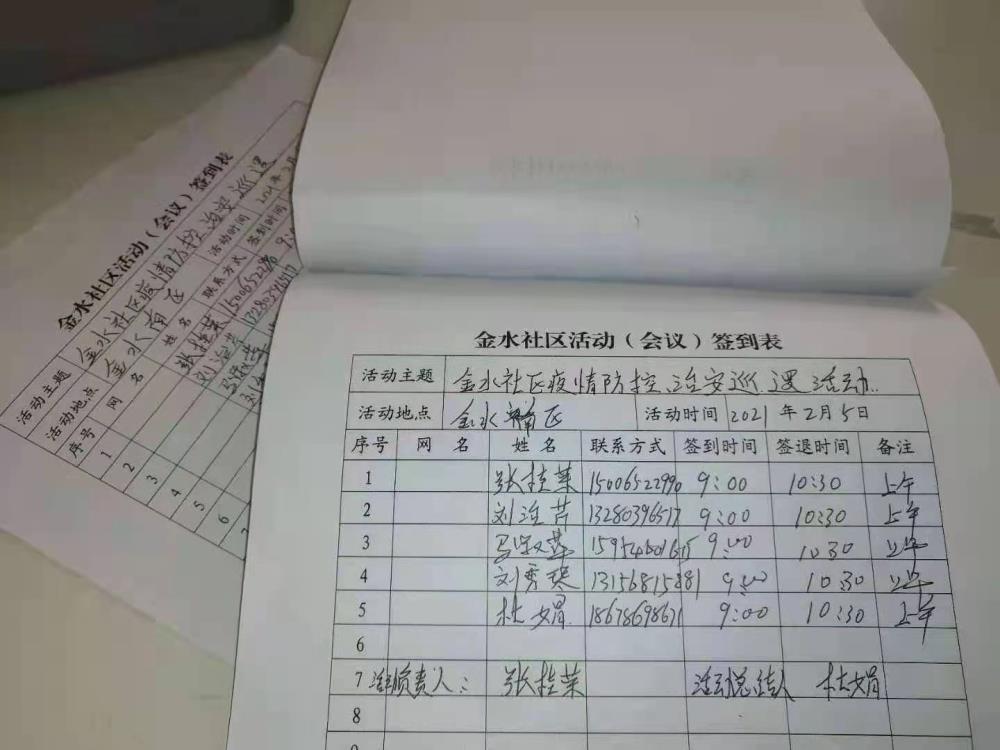 金水社区活动（会议）签到表
活动主题 金水社区疫情防控、治安巡逻活动
活动地点 金水南区 活动时间 2021年2月5日
序号 网名 姓名 联系方式 签到时间 签退时间 备注
1 张桂荣 15006522990 9:00 10:30 上午
2 刘 芹 13280396517 9:00 10:30 上午
3 9:00 10:30 上午
4 刘秀 9:00 10:30 上午
5 杜娟 18678698671 9:00 10:30 上午
6
7 活动负责人： 张桂荣 活动总结人 杜娟
8
金水社区活动（会议）签到表
活动主题 金水社区疫情防控、治安巡逻
活动地点 金水南区 活动时间 2021年
序号 网名 姓名 联系方式 签到时间
1 张桂荣 15006522990 9:0
2 刘 芹 13280396517
3
4
5
6